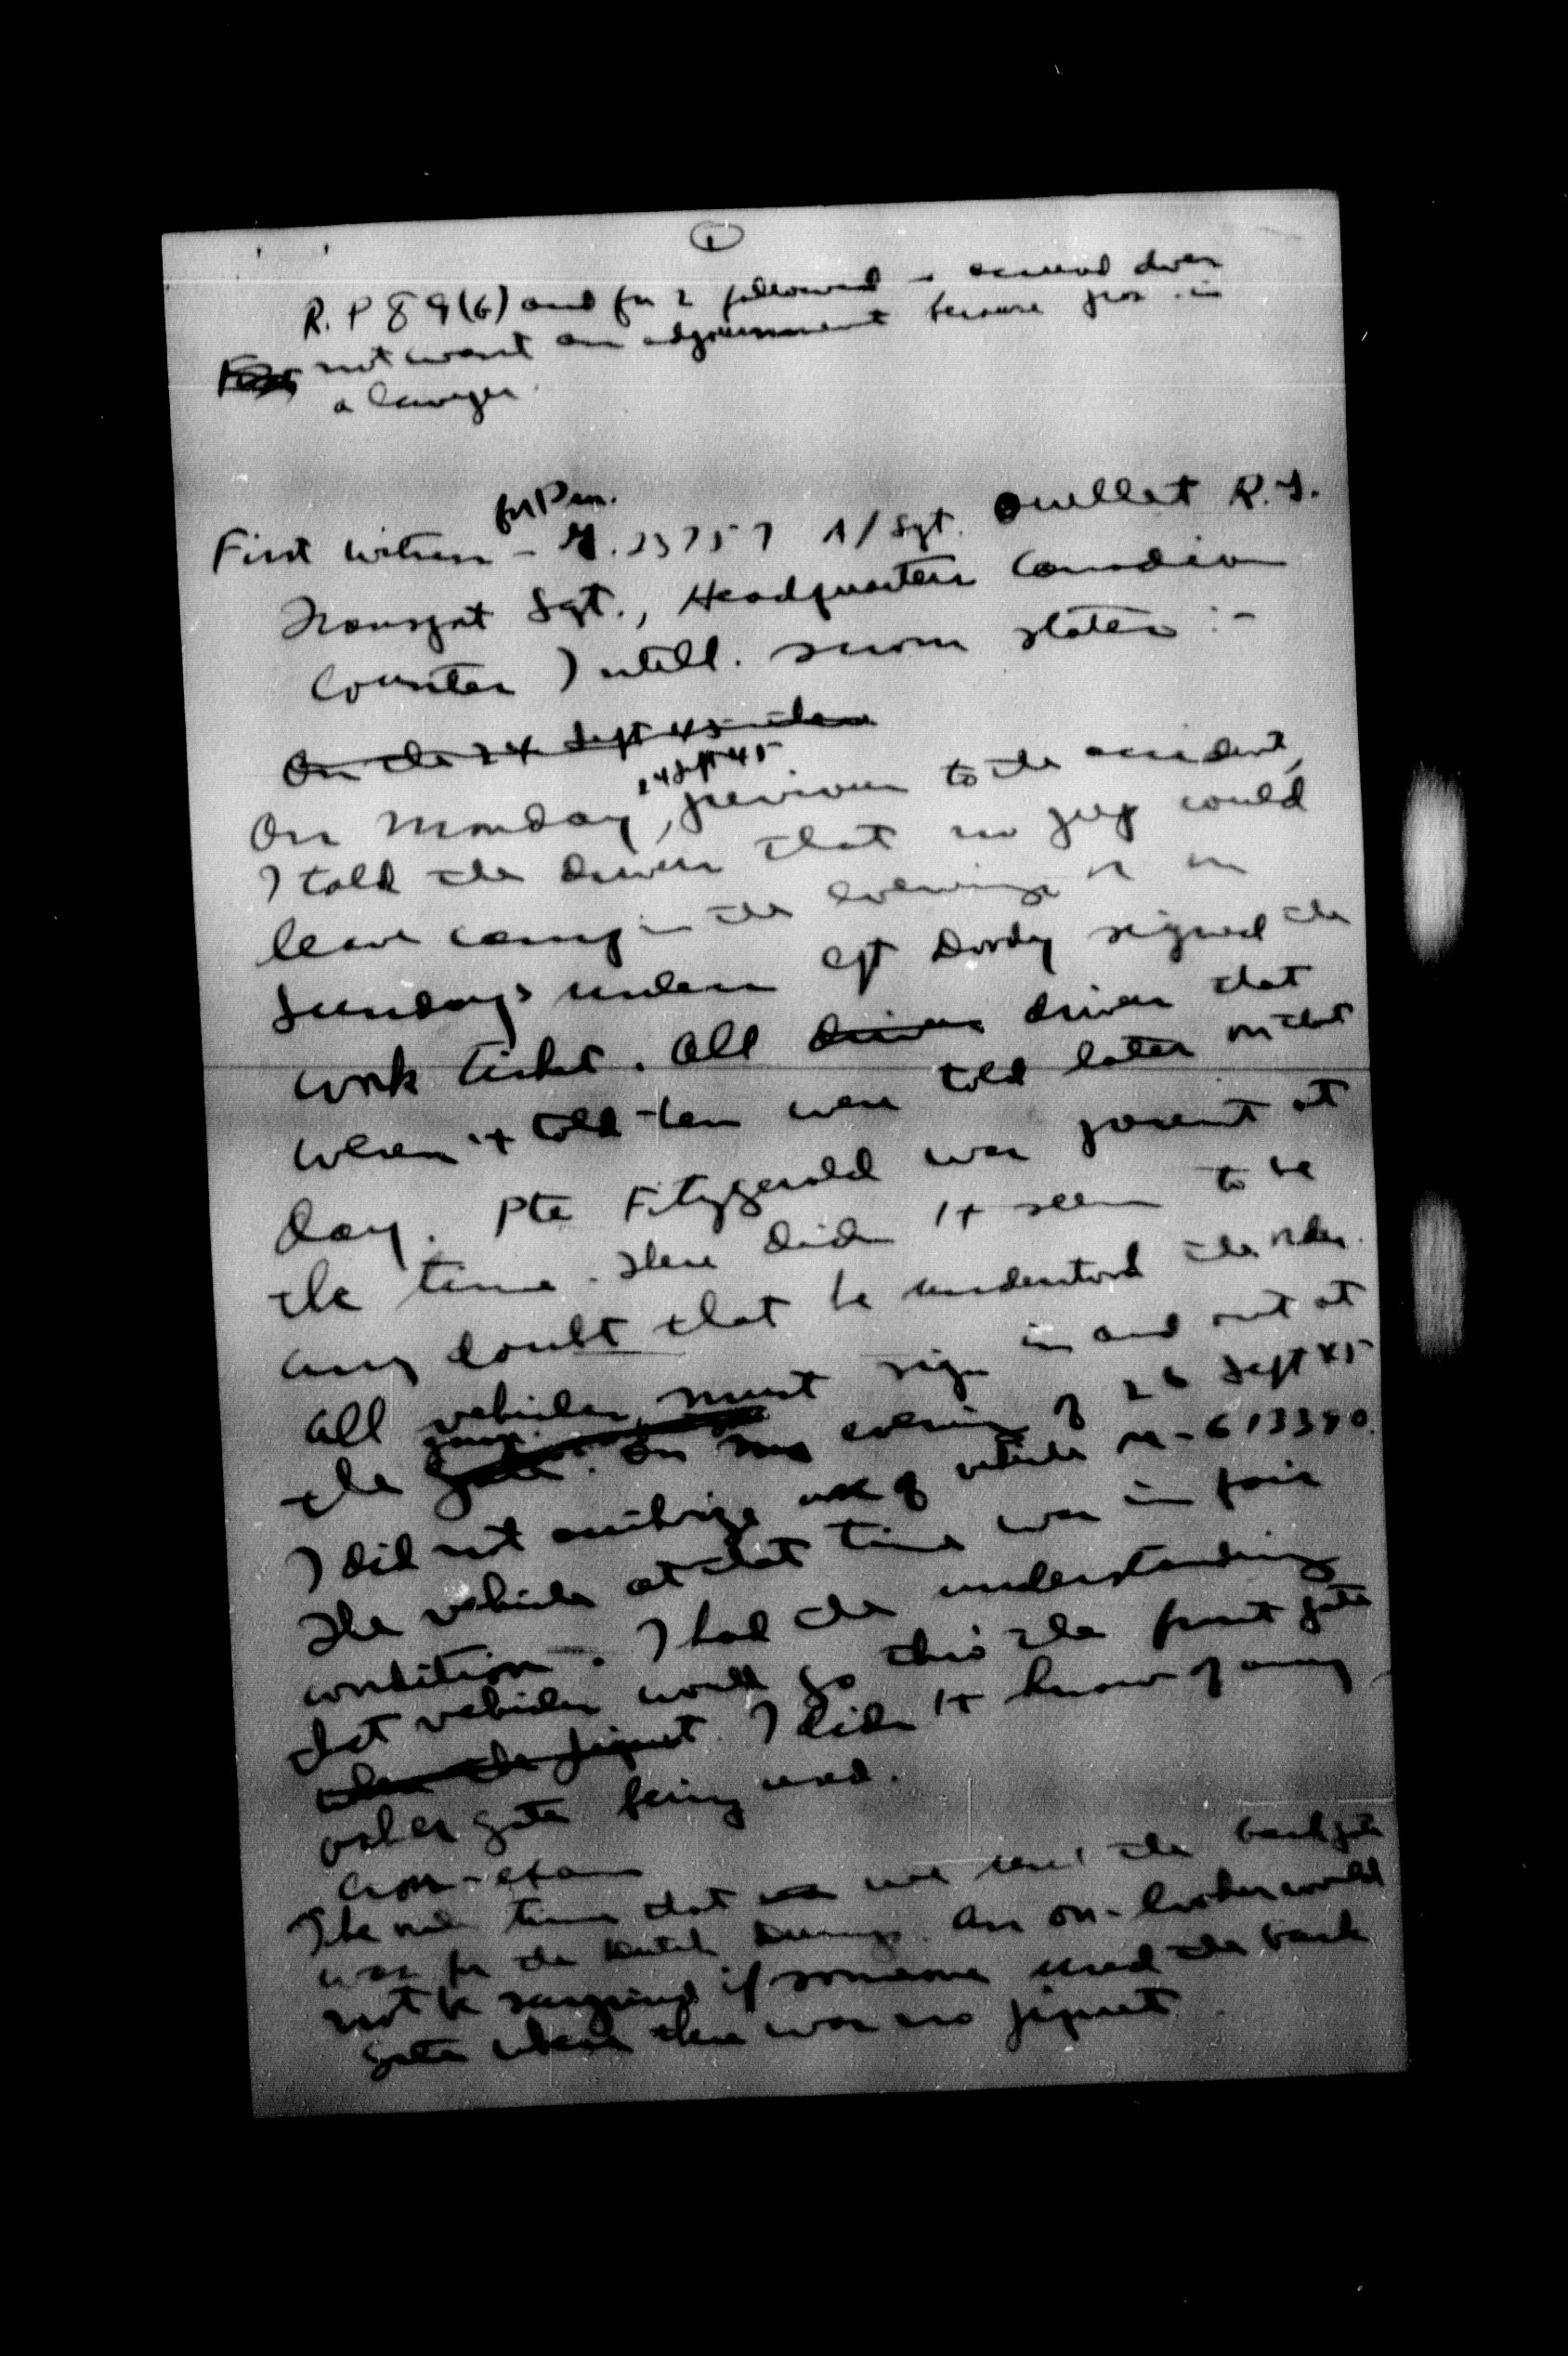 1
R.P 89(G) and fn 2 followed - accused does
not want an adjournment because pros. is
a lawyer.
for Pros.
First Witness - G.23757 A/Sgt. Ouellet R.J.
Transport Sgt., Headquarters Canadian
Counter Intell. sworn states :-
On the 24 Sept 45
24 Sept 45
On Monday, previous to the accident,
I told the drivers that no jeep could
leave camp in the evenings or on
Sundays unless Cpt Dordy signed the
work ticket. All drivers drivers that
weren't told then were told later on that
day. Pte Fitzgerald was present at
the time. There didn't seem to be
any doubt that he understood the order.
All vehicles must sign in and out at
the gate. On the evening of 26 Sept 45
I did not authorize use of vehicle M-613390.
The vehicle at that time was in fair
condition. I had the understanding
that vehicles would go thro' the front gate
when the piquet. I didn't know of any
other gate being used.
Cross-exam
The only time that we used the back gate
was for the Dutch Dump. An on-looker would
not be surprised if someone used the back
gate when there was no piquet.